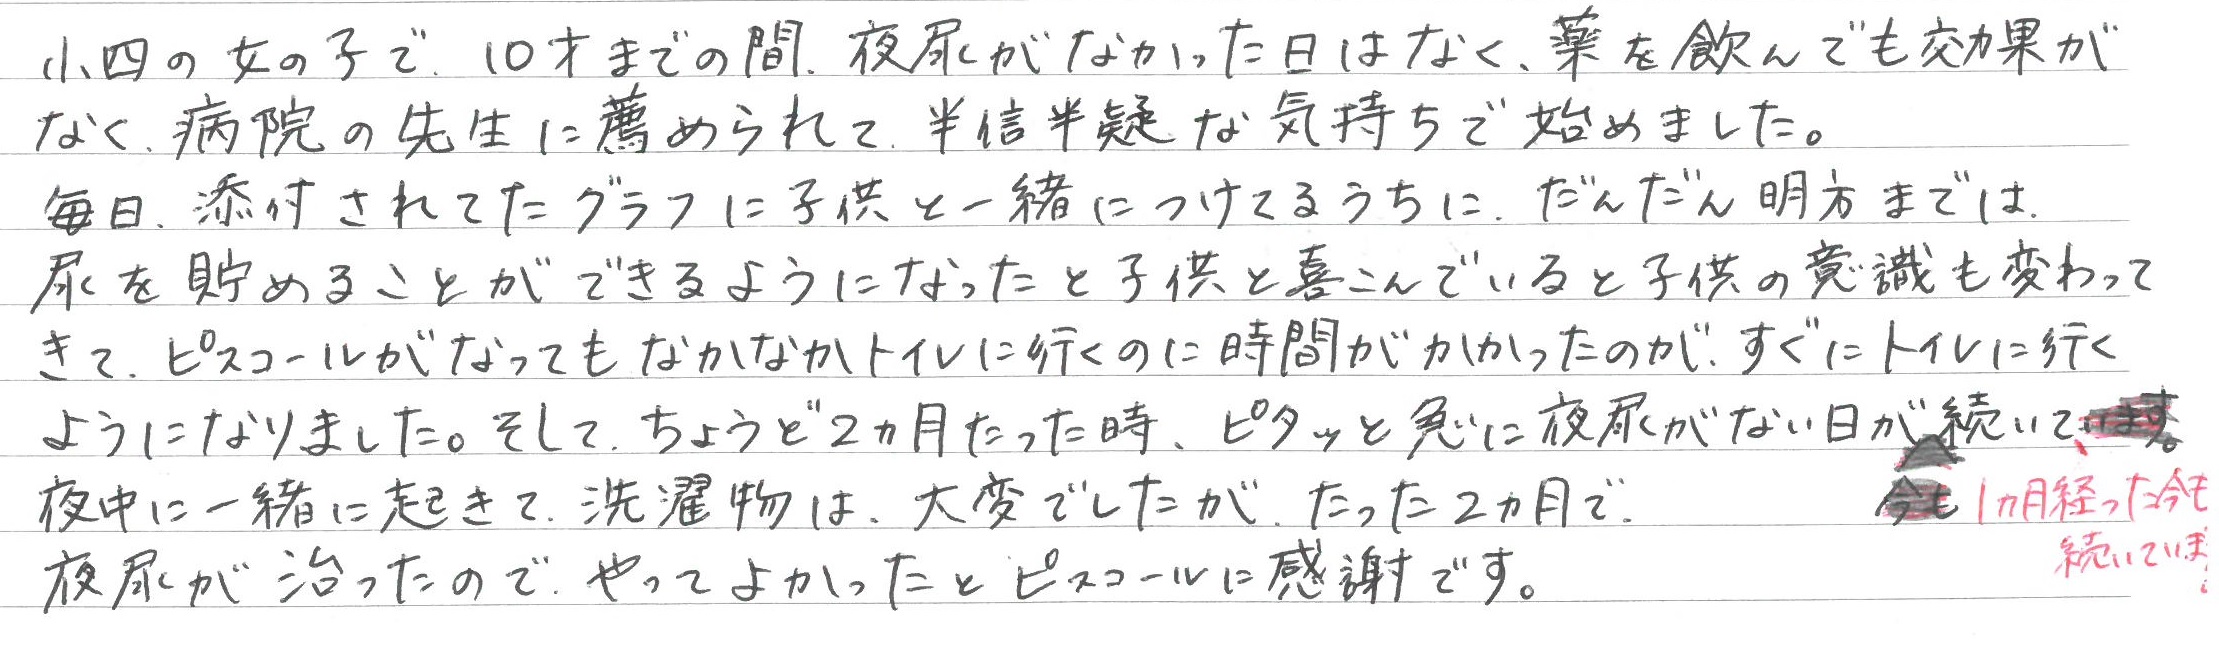 小四の女の子で、10才までの間、夜尿がなかった日はなく、薬を飲んでも効果が
なく、病院の先生に薦められて、半信半疑な気持ちで始めました。
毎日、添付されてたグラフに子供と一緒につけてるうちに、だんだん明方までは、
尿を貯めることができるようになったと子供と喜こんでいると子供の意識も変わって
きて、ピスコールがなってもなかなかトイレに行くのに時間がかかったのが、すぐにトイレに行く
ようになりました。そして、ちょうど2ヵ月たった時、ピタッと急に夜尿がない日が続いて、います。
夜中に一緒に起きて、洗濯物は、大変でしたが、たった2ヵ月で、
今も 1ヵ月経った今も
続いていま
夜尿が治ったので、やってよかったとピスコールに感謝です。